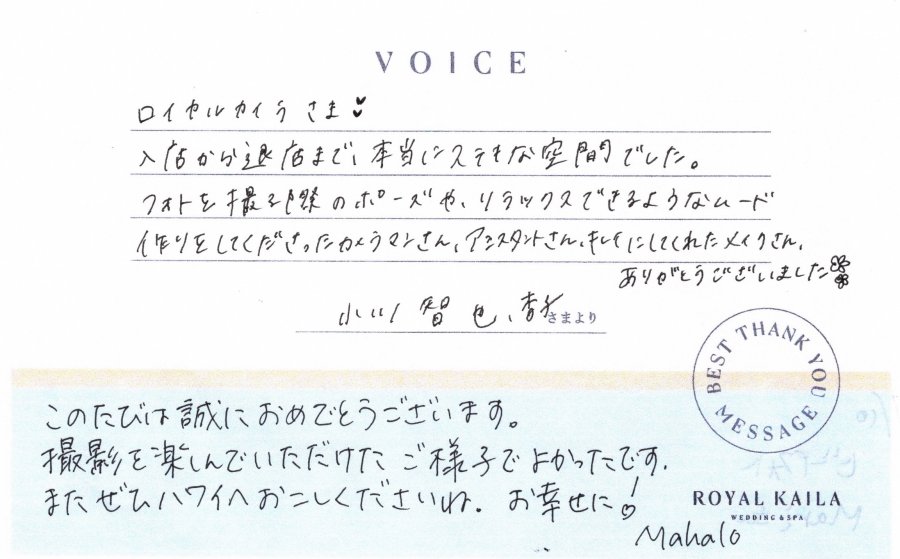 VOICE
ロイヤルカイラさま
入店から退店まで、本当にステキな空間でした。
フォトを撮る際のポーズや、リラックスできるようなムード
作りをしてくださったカメラマンさん、アシスタントさん、キレイにしてくれたメイクさん、
ありがとうございました
小川 智也、杏 さまより
BEST THANK YOU MESSAGE
このたびは誠におめでとうございます。
撮影を楽しんでいただけたご様子でよかったです.
またぜひハワイへおこしくださいね. お幸せに!
ROYAL KAILA
WEDDING & SPA
Mahalo